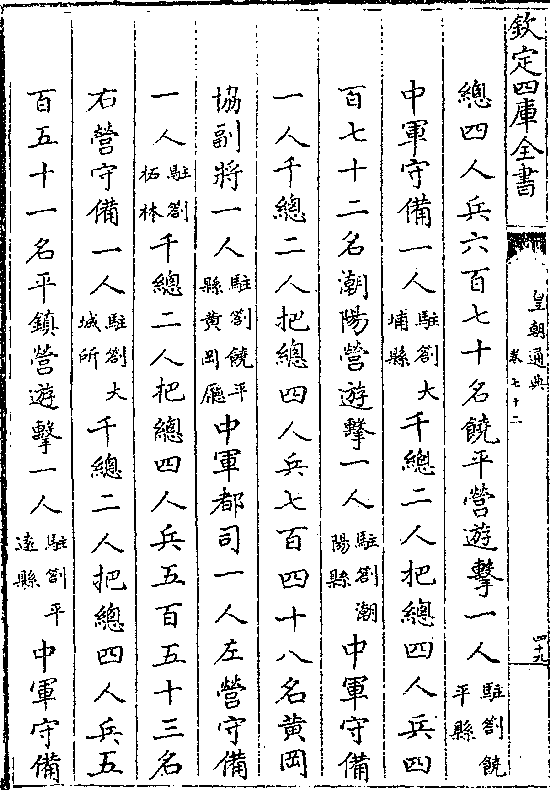 欽定四庫全書
皇朝通典
卷七十二
四十九
總四人兵六百七十名饒平營遊擊一人駐劄饒平縣
中軍守備一人駐劄大埔縣千總二人把總四人兵四
百七十二名潮陽營遊擊一人駐劄潮陽縣中軍守備
一人千總二人把總四人兵七百四十八名黃岡
協副將一人駐劄饒平縣黃岡廳中軍都司一人左營守備
一人駐劄柘林千總二人把總四人兵五百五十三名
右營守備一人駐劄大城所千總二人把總四人兵五
百五十一名平鎮營遊擊一人駐劄平遠縣中軍守備